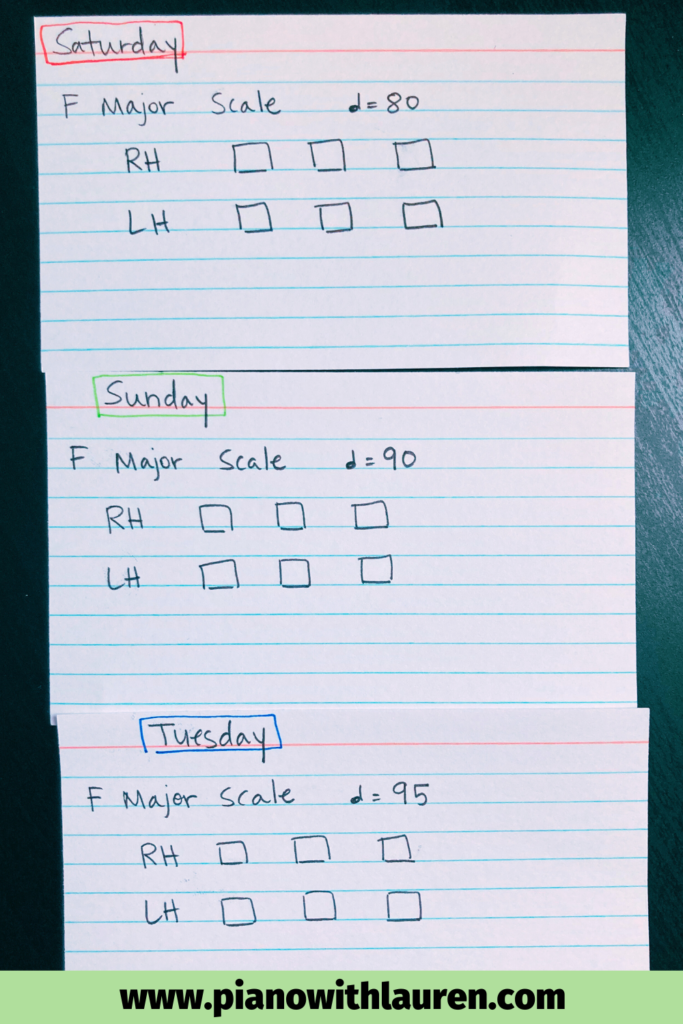 Saturday
F Major Scale ♩=80
RH □ □ □
LH □ □ □
Sunday
F Major Scale ♩=90
RH □ □ □
LH □ □ □
Tuesday
F Major Scale ♩=95
RH □ □ □
LH □ □ □
www.pianowithlauren.com